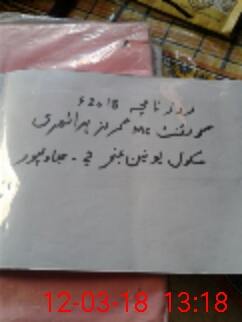 روزنامچہ 2018ء
گورنمنٹ MC گرلز پرائمری
سکول یونین نمبر 2 - سجاولپور
12-03-18 13:18